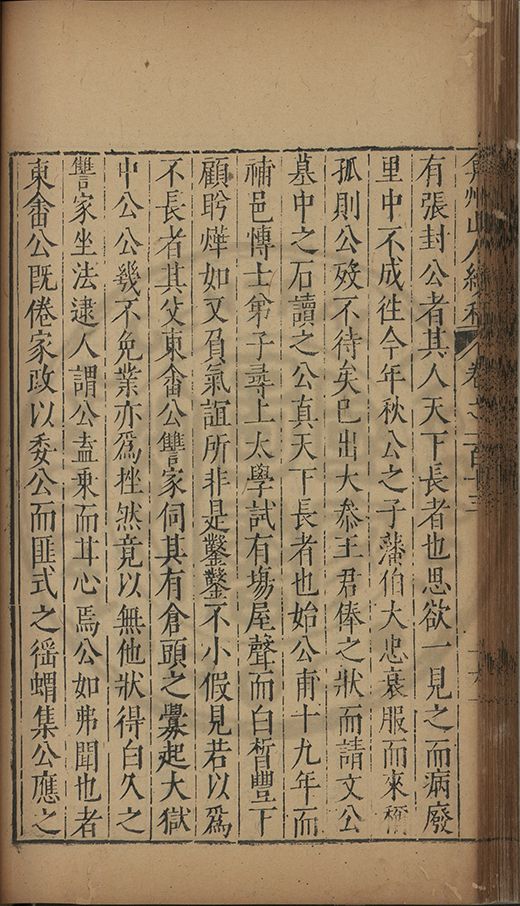 弇州山人續稿 卷之一百十三
有張封公者其人天下長者也思欲一見之而病廢
里中不成往今年秋公之子藩伯大忠衰服而來稱
孤則公歿不待矣已出大叅王君俸之狀而請文公
墓中之石讀之公真天下長者也始公甫十九年而
補邑慱士弟子尋上太學試有塲屋聲而白晳豐下
顧盻燁如又負氣誼所非是鑿鑿不小假見若以爲
不長者其父東畬公讐家伺其有倉頭之釁起大獄
中公公幾不免業亦爲挫然竟以無他狀得白久之
讐家坐法逮人謂公盍乗而甘心焉公如弗聞也者
東畬公既倦家政以委公而匪式之徭蝟集公應之